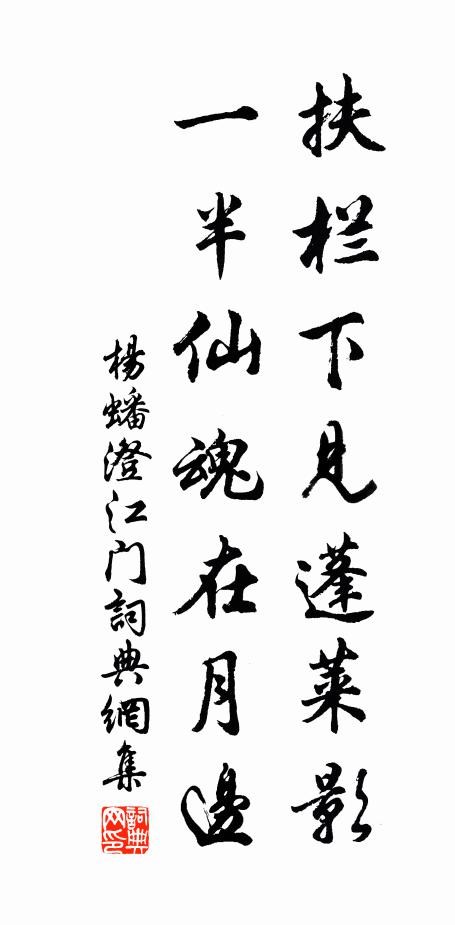 扶栏下見蓬莱影
一半仙魂在月邊
楊蟠澄江门詞典網集
詞典网印